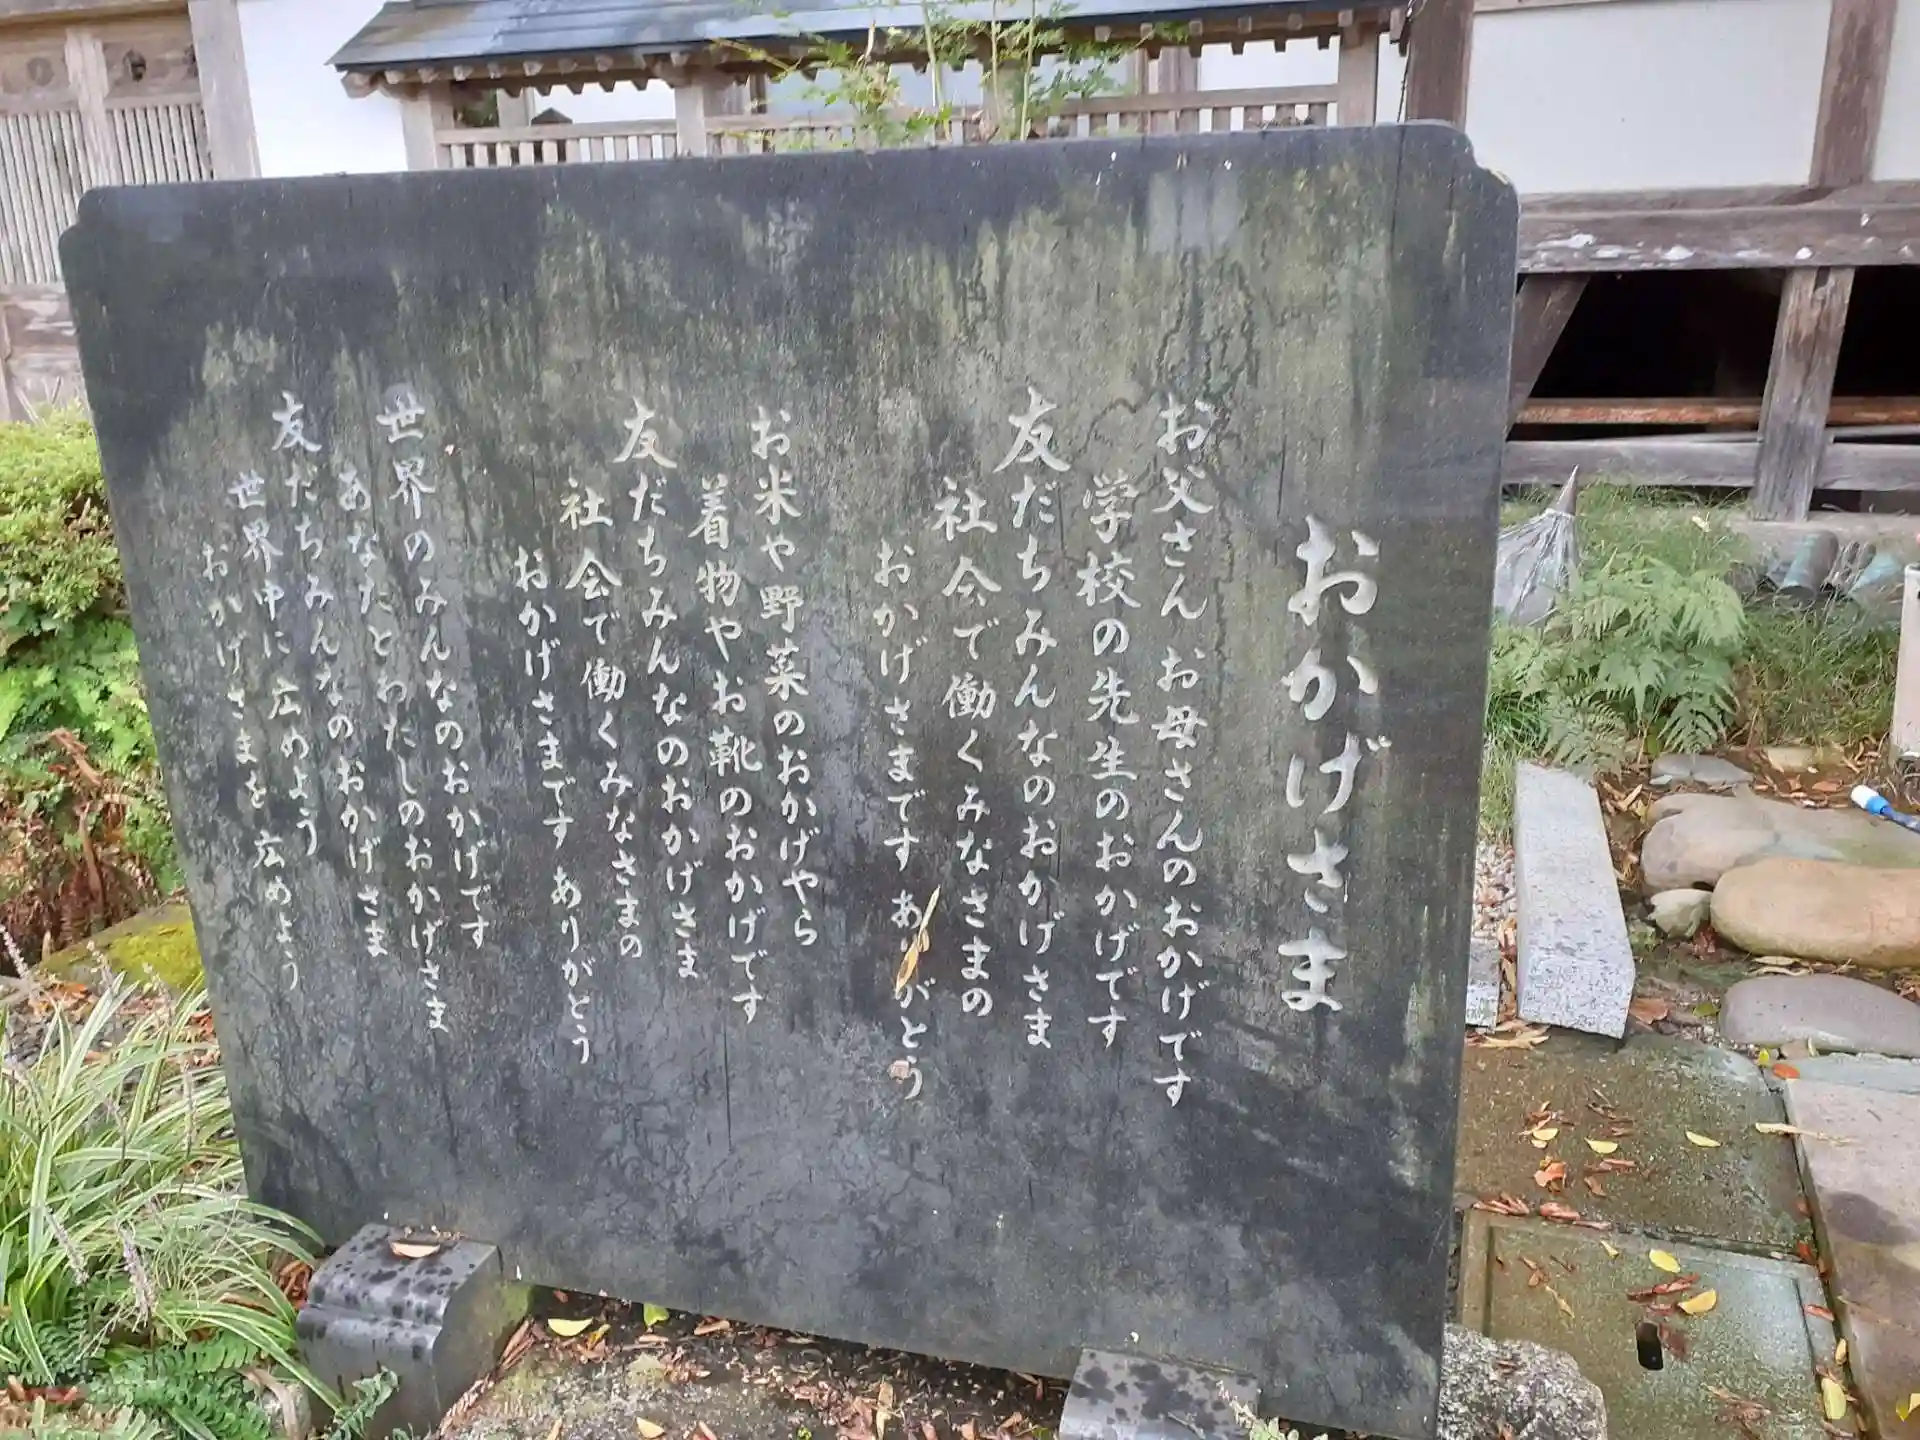 おかげさま
お父さん お母さんのおかげです
学校の先生のおかげです
友だちみんなのおかげさま
社会で働くみなさまの
おかげさまです ありがとう
お米や野菜のおかげやら
着物やお靴のおかげです
友だちみんなのおかげさま
社会で働くみなさまの
おかげさまです ありがとう
世界のみんなのおかげです
あなたとわたしのおかげさま
友だちみんなのおかげさま
世界中に 広めよう
おかげさまを 広めよう